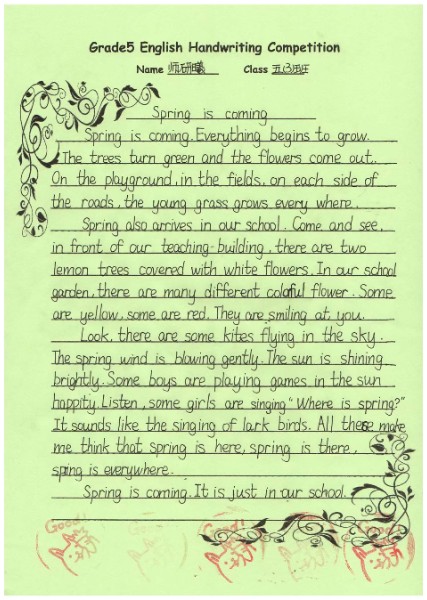 Grade5 English Handwriting Competition
Name 师研曦 Class 五(3)班
Spring is coming
Spring is coming. Everything begins to grow.
The trees turn green and the flowers come out.
On the playground, in the fields, on each side of
the roads, the young grass grows every where.
Spring also arrives in our school. Come and see,
in front of our teaching-building, there are two
lemon trees covered with white flowers. In our school
garden, there are many different colorful flower. Some
are yellow, some are red. They are smiling at you.
Look, there are some kites flying in the sky.
The spring wind is blowing gently. The sun is shining
brightly. Some boys are playing games in the sun
happity. Listen, some girls are singing "Where is spring?"
It sounds like the singing of lark birds. All these make
me think that spring is here, spring is there,
spring is everywhere.
Spring is coming. It is just in our school.
Good! Good! Good! Good!